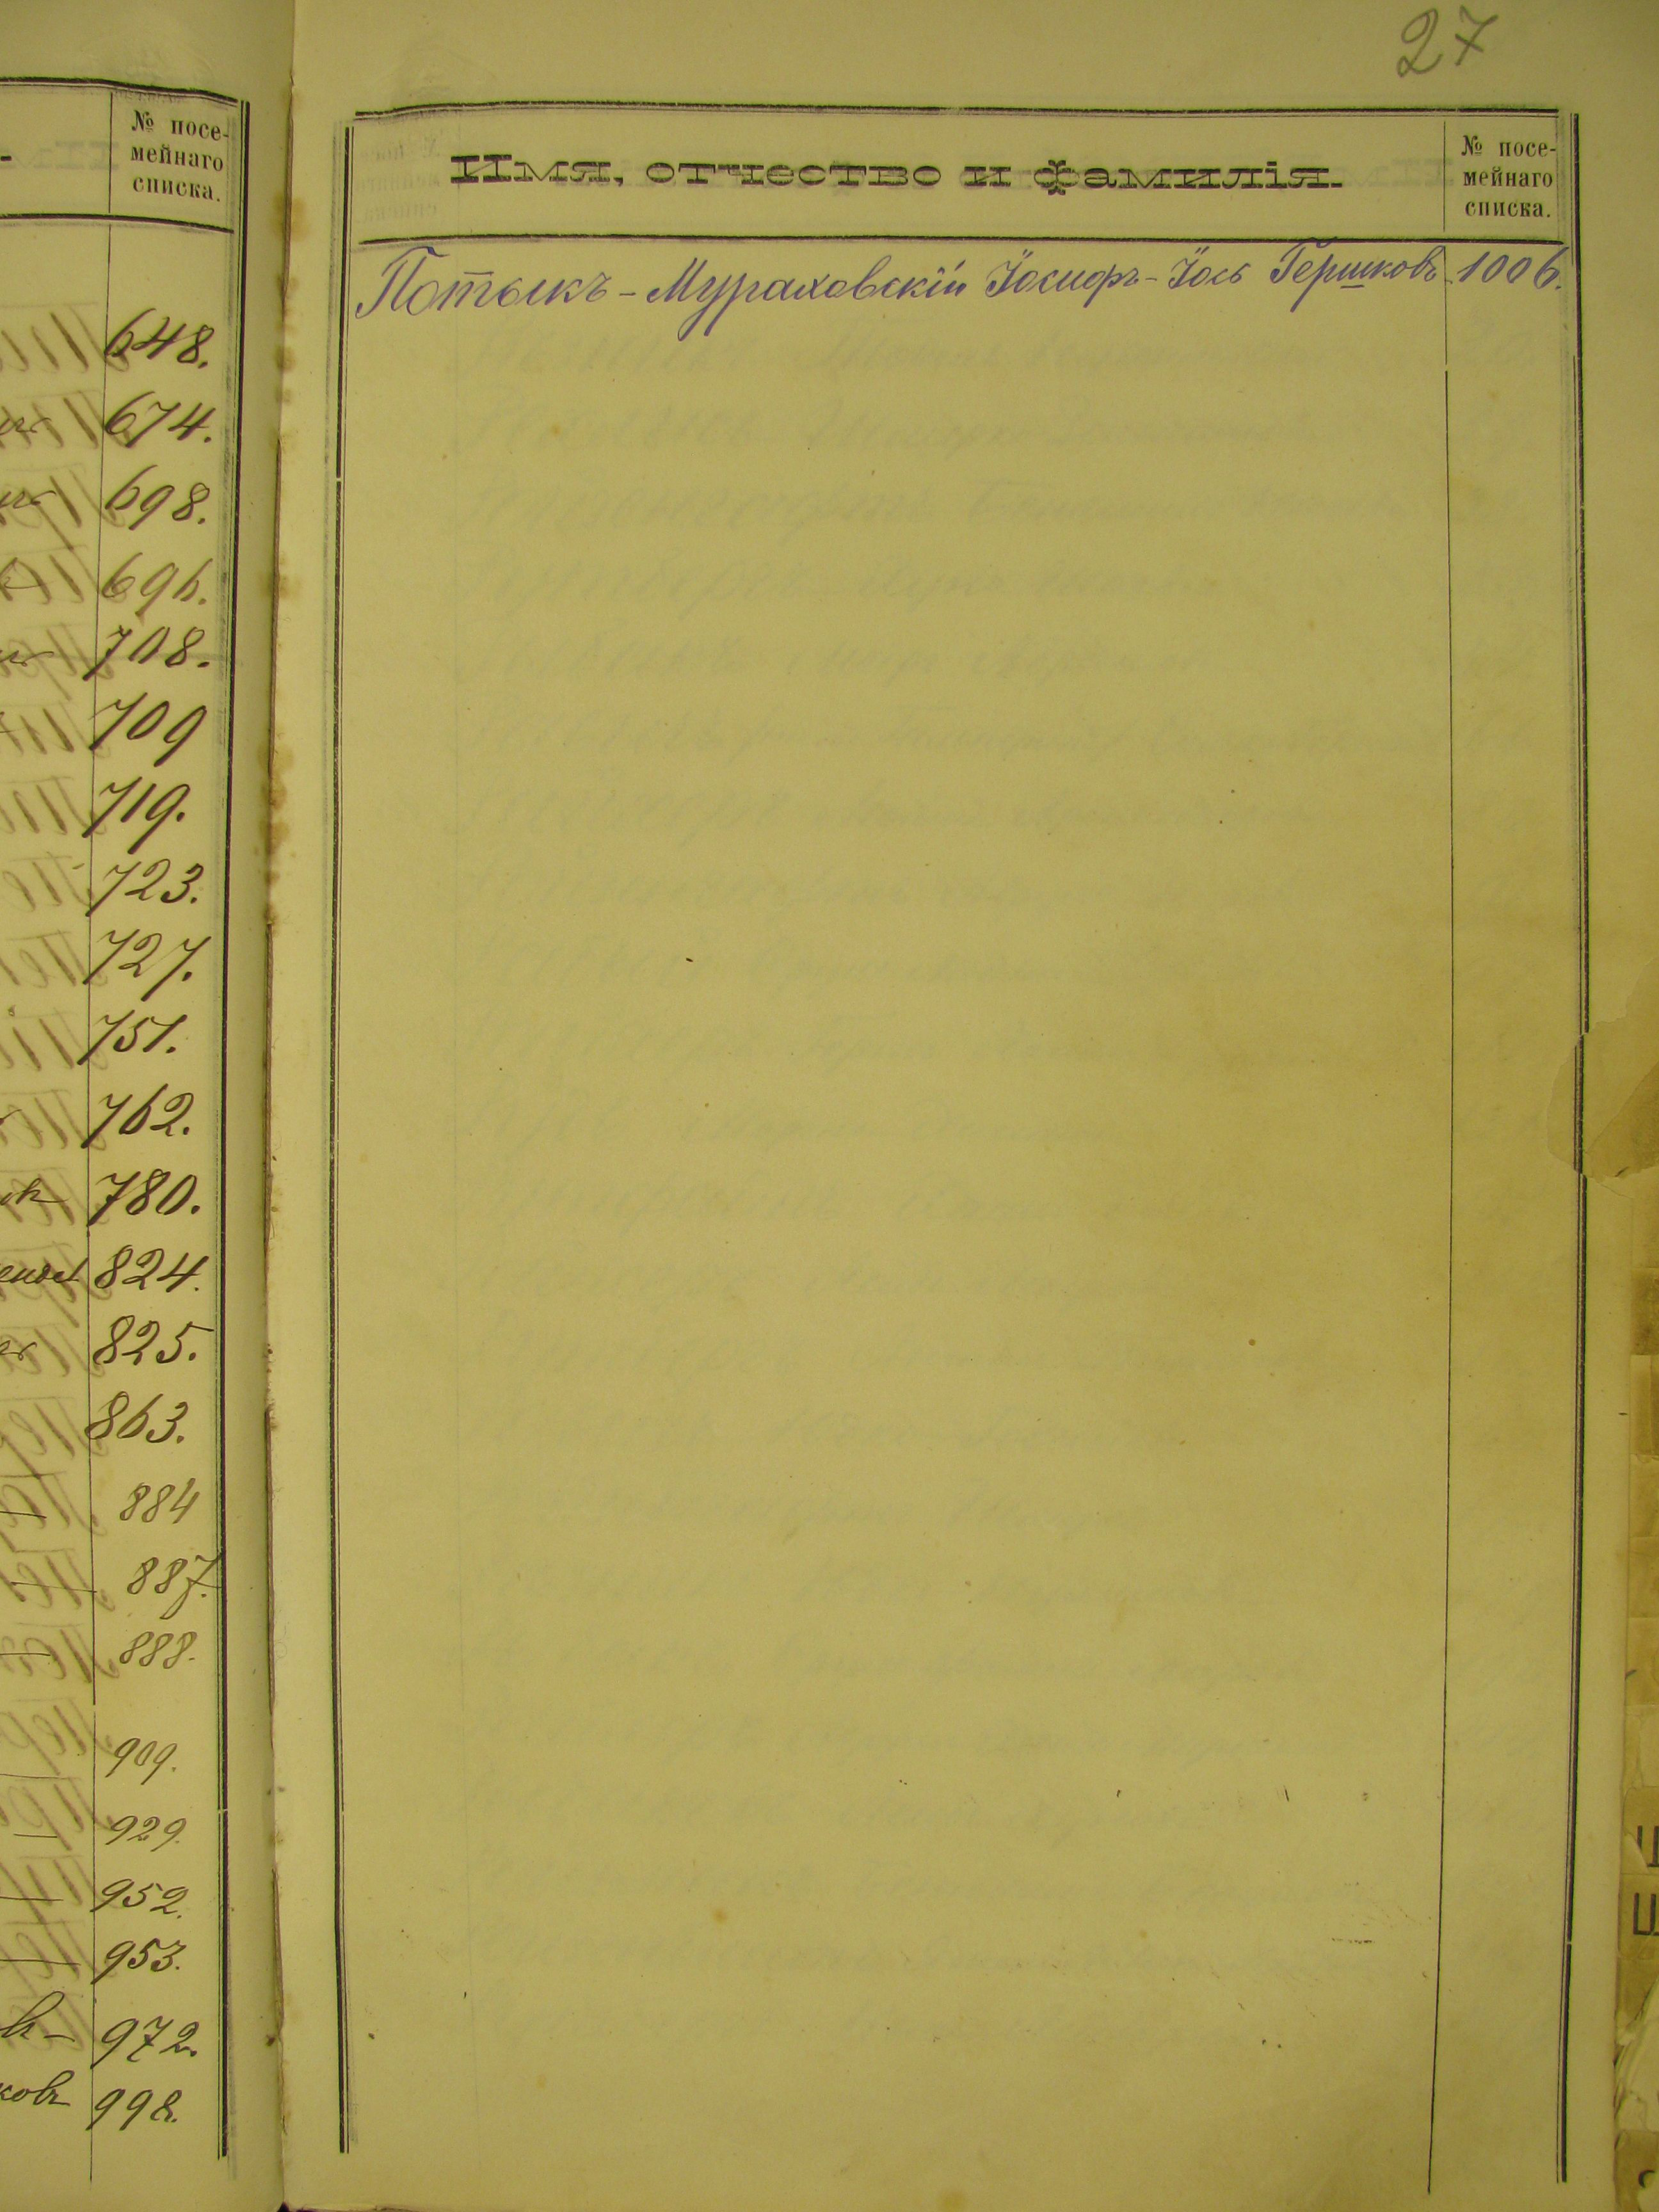 № посе-
мейнаго
списка.
648.
674.
698.
696.
708.
709
719.
723.
727.
751.
762.
780.
824.
825.
863.
884
887.
888.
909.
929.
952.
953.
972.
998.
27
Имя, отчество и фамилія.
№ посе-
мейнаго
списка.
Потыкъ - Мураховскій Іосифъ - Іось Гершковъ 1006.